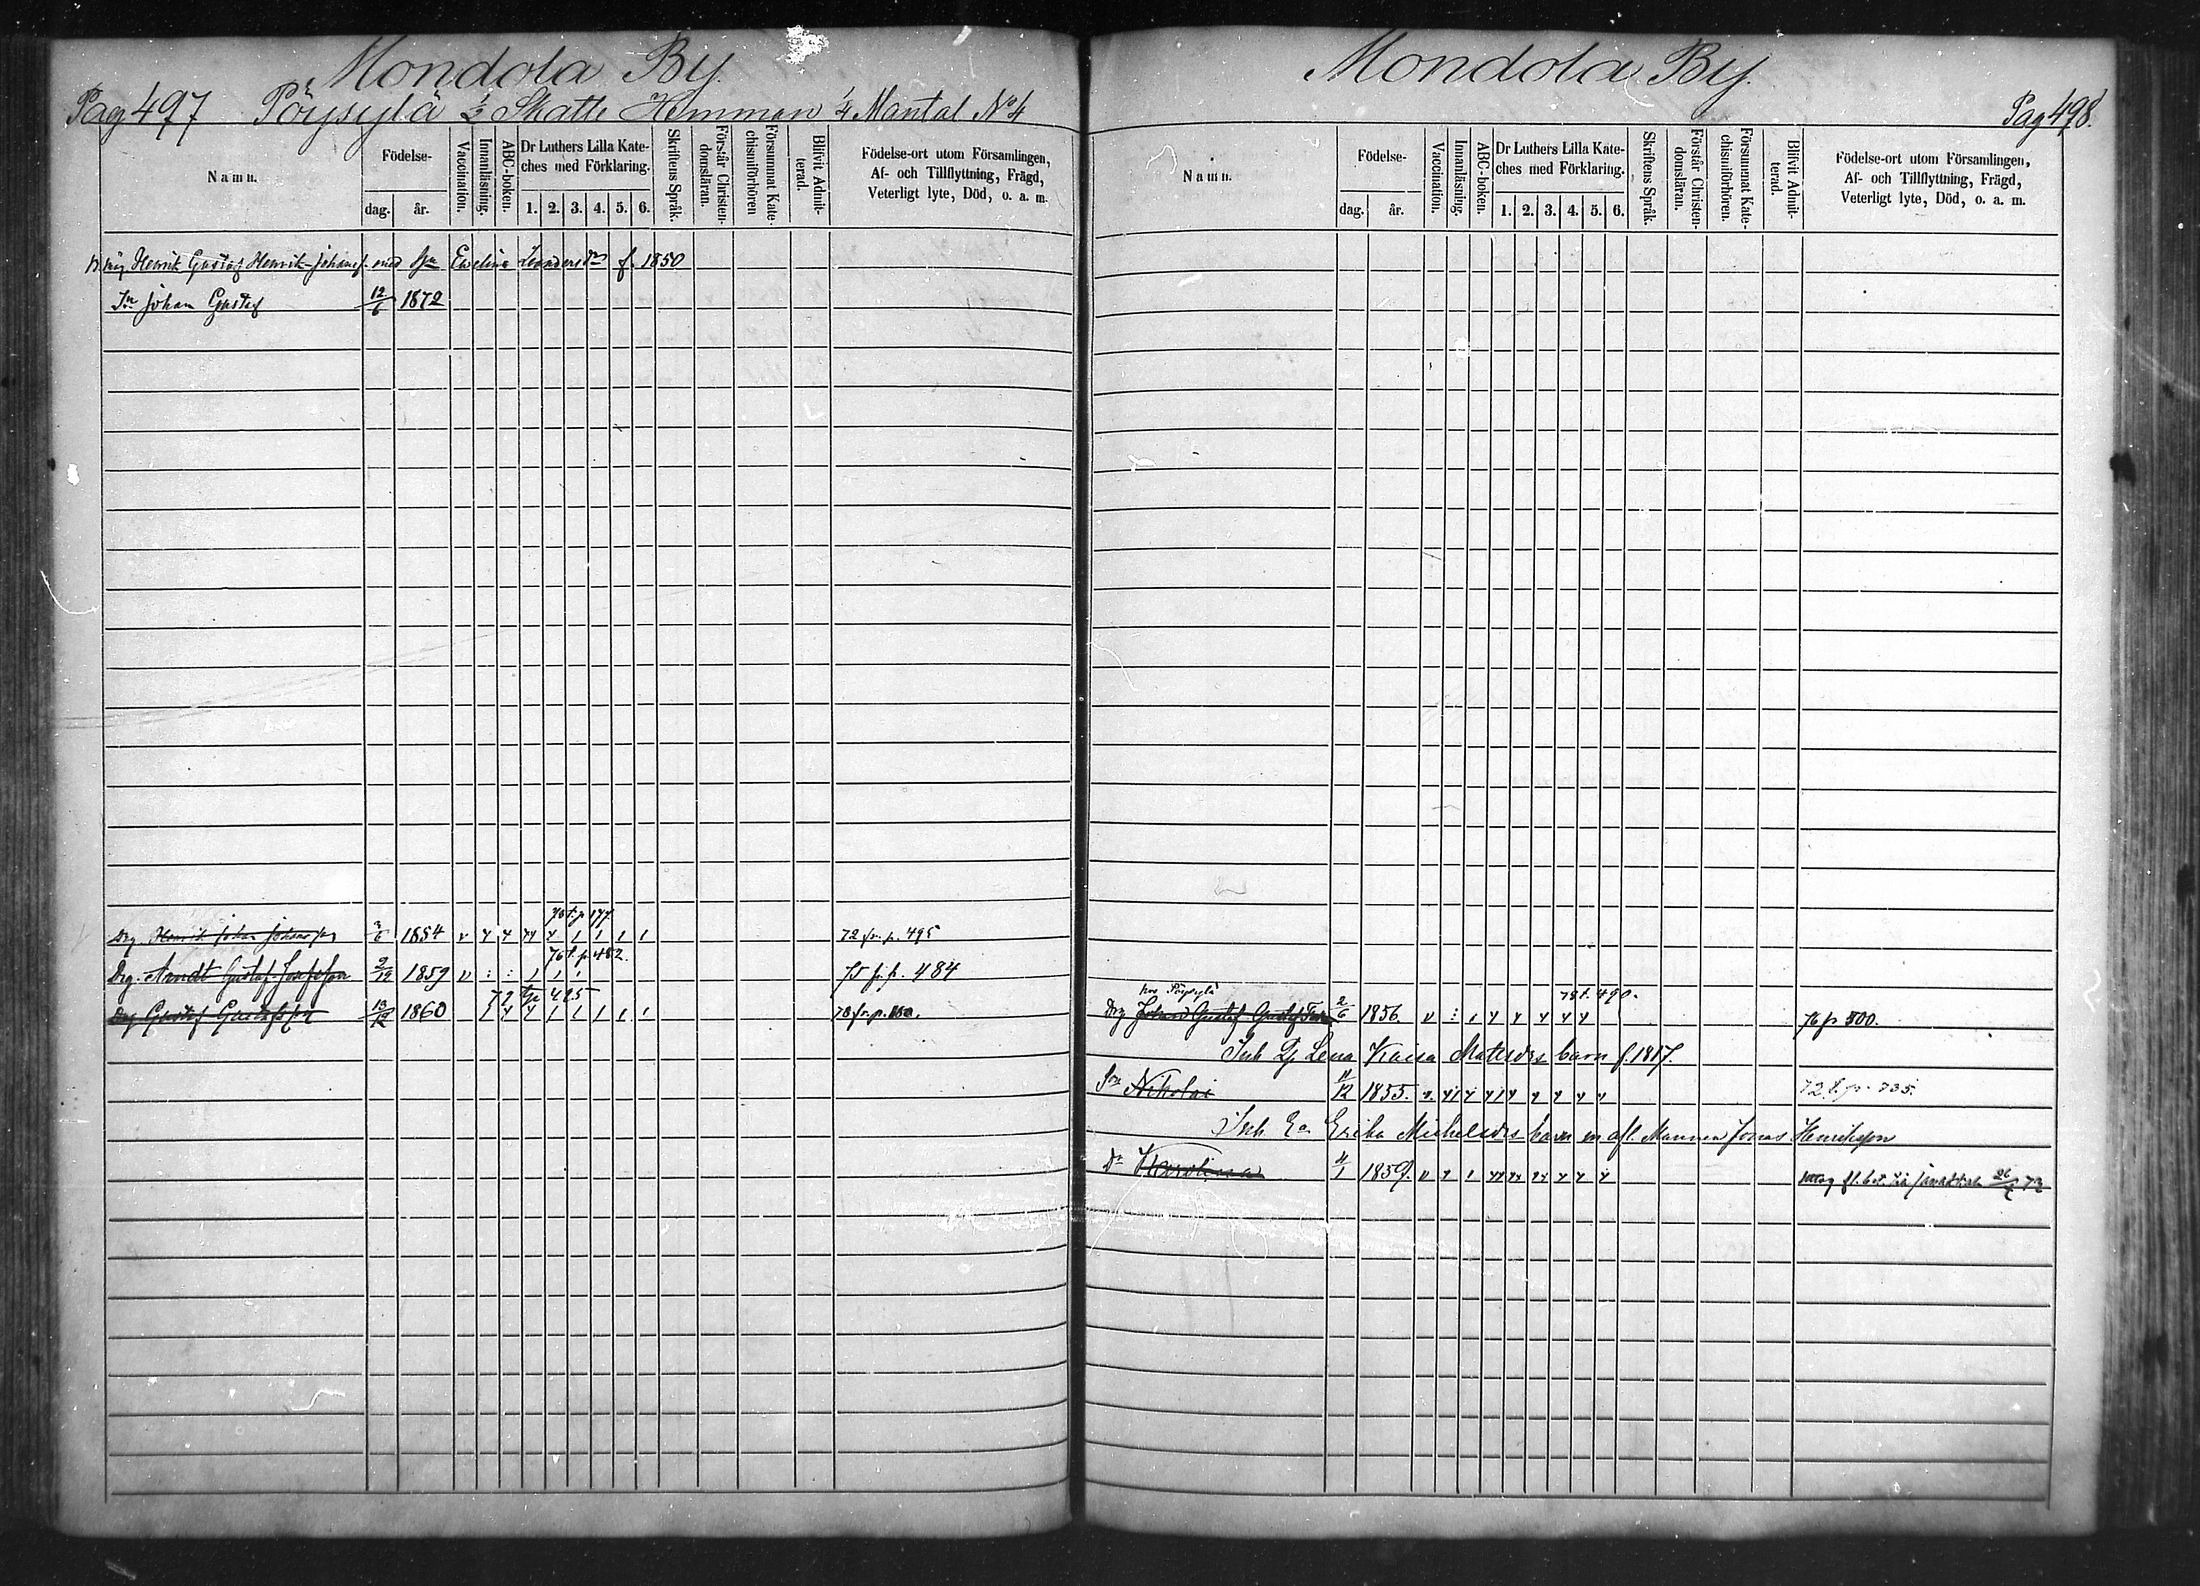 Mondola By.
Pag 497 Pöysylä ½ Skatte Hemman ¼ Mantal No 4
Namn.
Födelse-
dag. år.
Vaccination.
Innanläsning.
ABC-boken.
Dr Luthers Lilla Kate-
ches med Förklaring.
1. 2. 3. 4. 5. 6.
Skriftens Språk.
Förstår Christen-
domsläran.
Försummat Kate-
chismiförhören
Blifvit Admit-
terad.
Födelse-ort utom Församlingen,
Af- och Tillflyttning, Frägd,
Veterligt lyte, Död, o. a. m.
Henrik Gustaf Henrik Johansf. med Hu Evelina Leandersdr f. 1850
Sn Johan Gustaf 12/6 1872
78 t. p 177.
Drg. Henrik Johan 1854 72 fr. p. 495
76 t. p. 482.
Drg. Arndt Gustaf Josefsson 2/12 1859 75 fr. p. 484
79 tp 425
Drg Gustaf Gustafsson 1860 78 fr. p.
Mondola By.
Pag 498.
Namn.
Födelse-
dag. år.
Vaccination.
Innanläsning.
ABC-boken.
Dr Luthers Lilla Kate-
ches med Förklaring.
1. 2. 3. 4. 5. 6.
Skriftens Språk.
Förstår Christen-
domsläran.
Försummat Kate-
chismiförhören.
Blifvit Admit-
terad.
Födelse-ort utom Församlingen,
Af- och Tillflyttning, Frägd,
Veterligt lyte, Död, o. a. m.
hos Pöysylä 78 t. 490.
Drg Gustaf 2/6 1856. 76 fr 500.
Inh Lena Kaisa Matsdrs barn f. 1817.
Sn Nikolai 11/12 1855. 72 t. p. 735.
Inh Erika Michelsdrs barn m afl. Mannen Jonas Henriksson
Dr Karolina 4/1 1859.